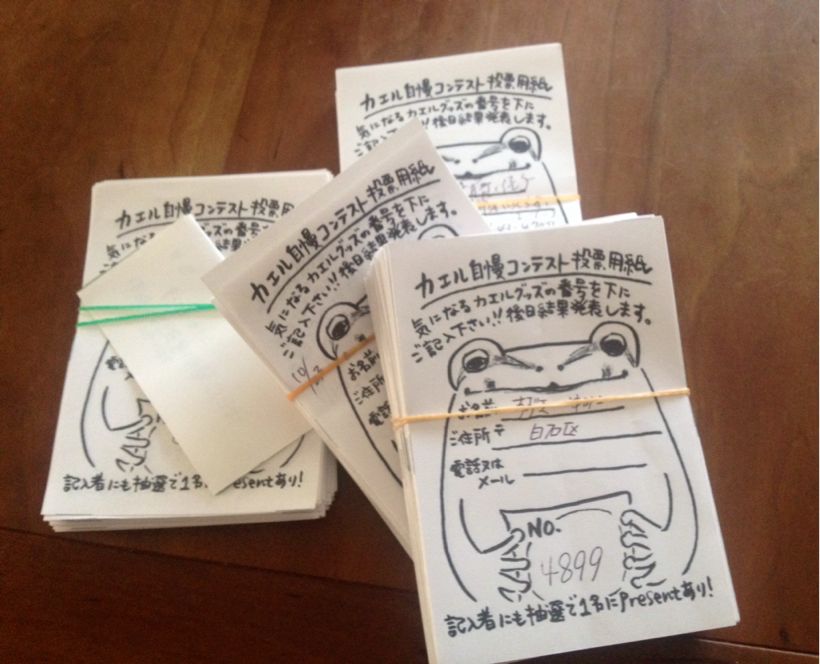 カエル自慢コンテスト投票用紙
気になるカエルグッズの番号を下に
ご記入下さい!!後日結果発表します。
カエル自慢コンテスト投票用紙
気に
ご記
記入者にも抽選で1名にPresentあり!
カエル自慢コンテスト投票用紙
気になるカエルグッズの番号を下に
ご記入下さい!!後日結果発表します。
10/23
お名前
ご住所
電話
カエル自慢コンテスト投票用紙
気になるカエルグッズの番号を下に
ご記入下さい!!後日結果発表します。
お名前
ご住所〒 白石区
電話又は
メール
NO.
4899
記入者にも抽選で1名にPresentあり!